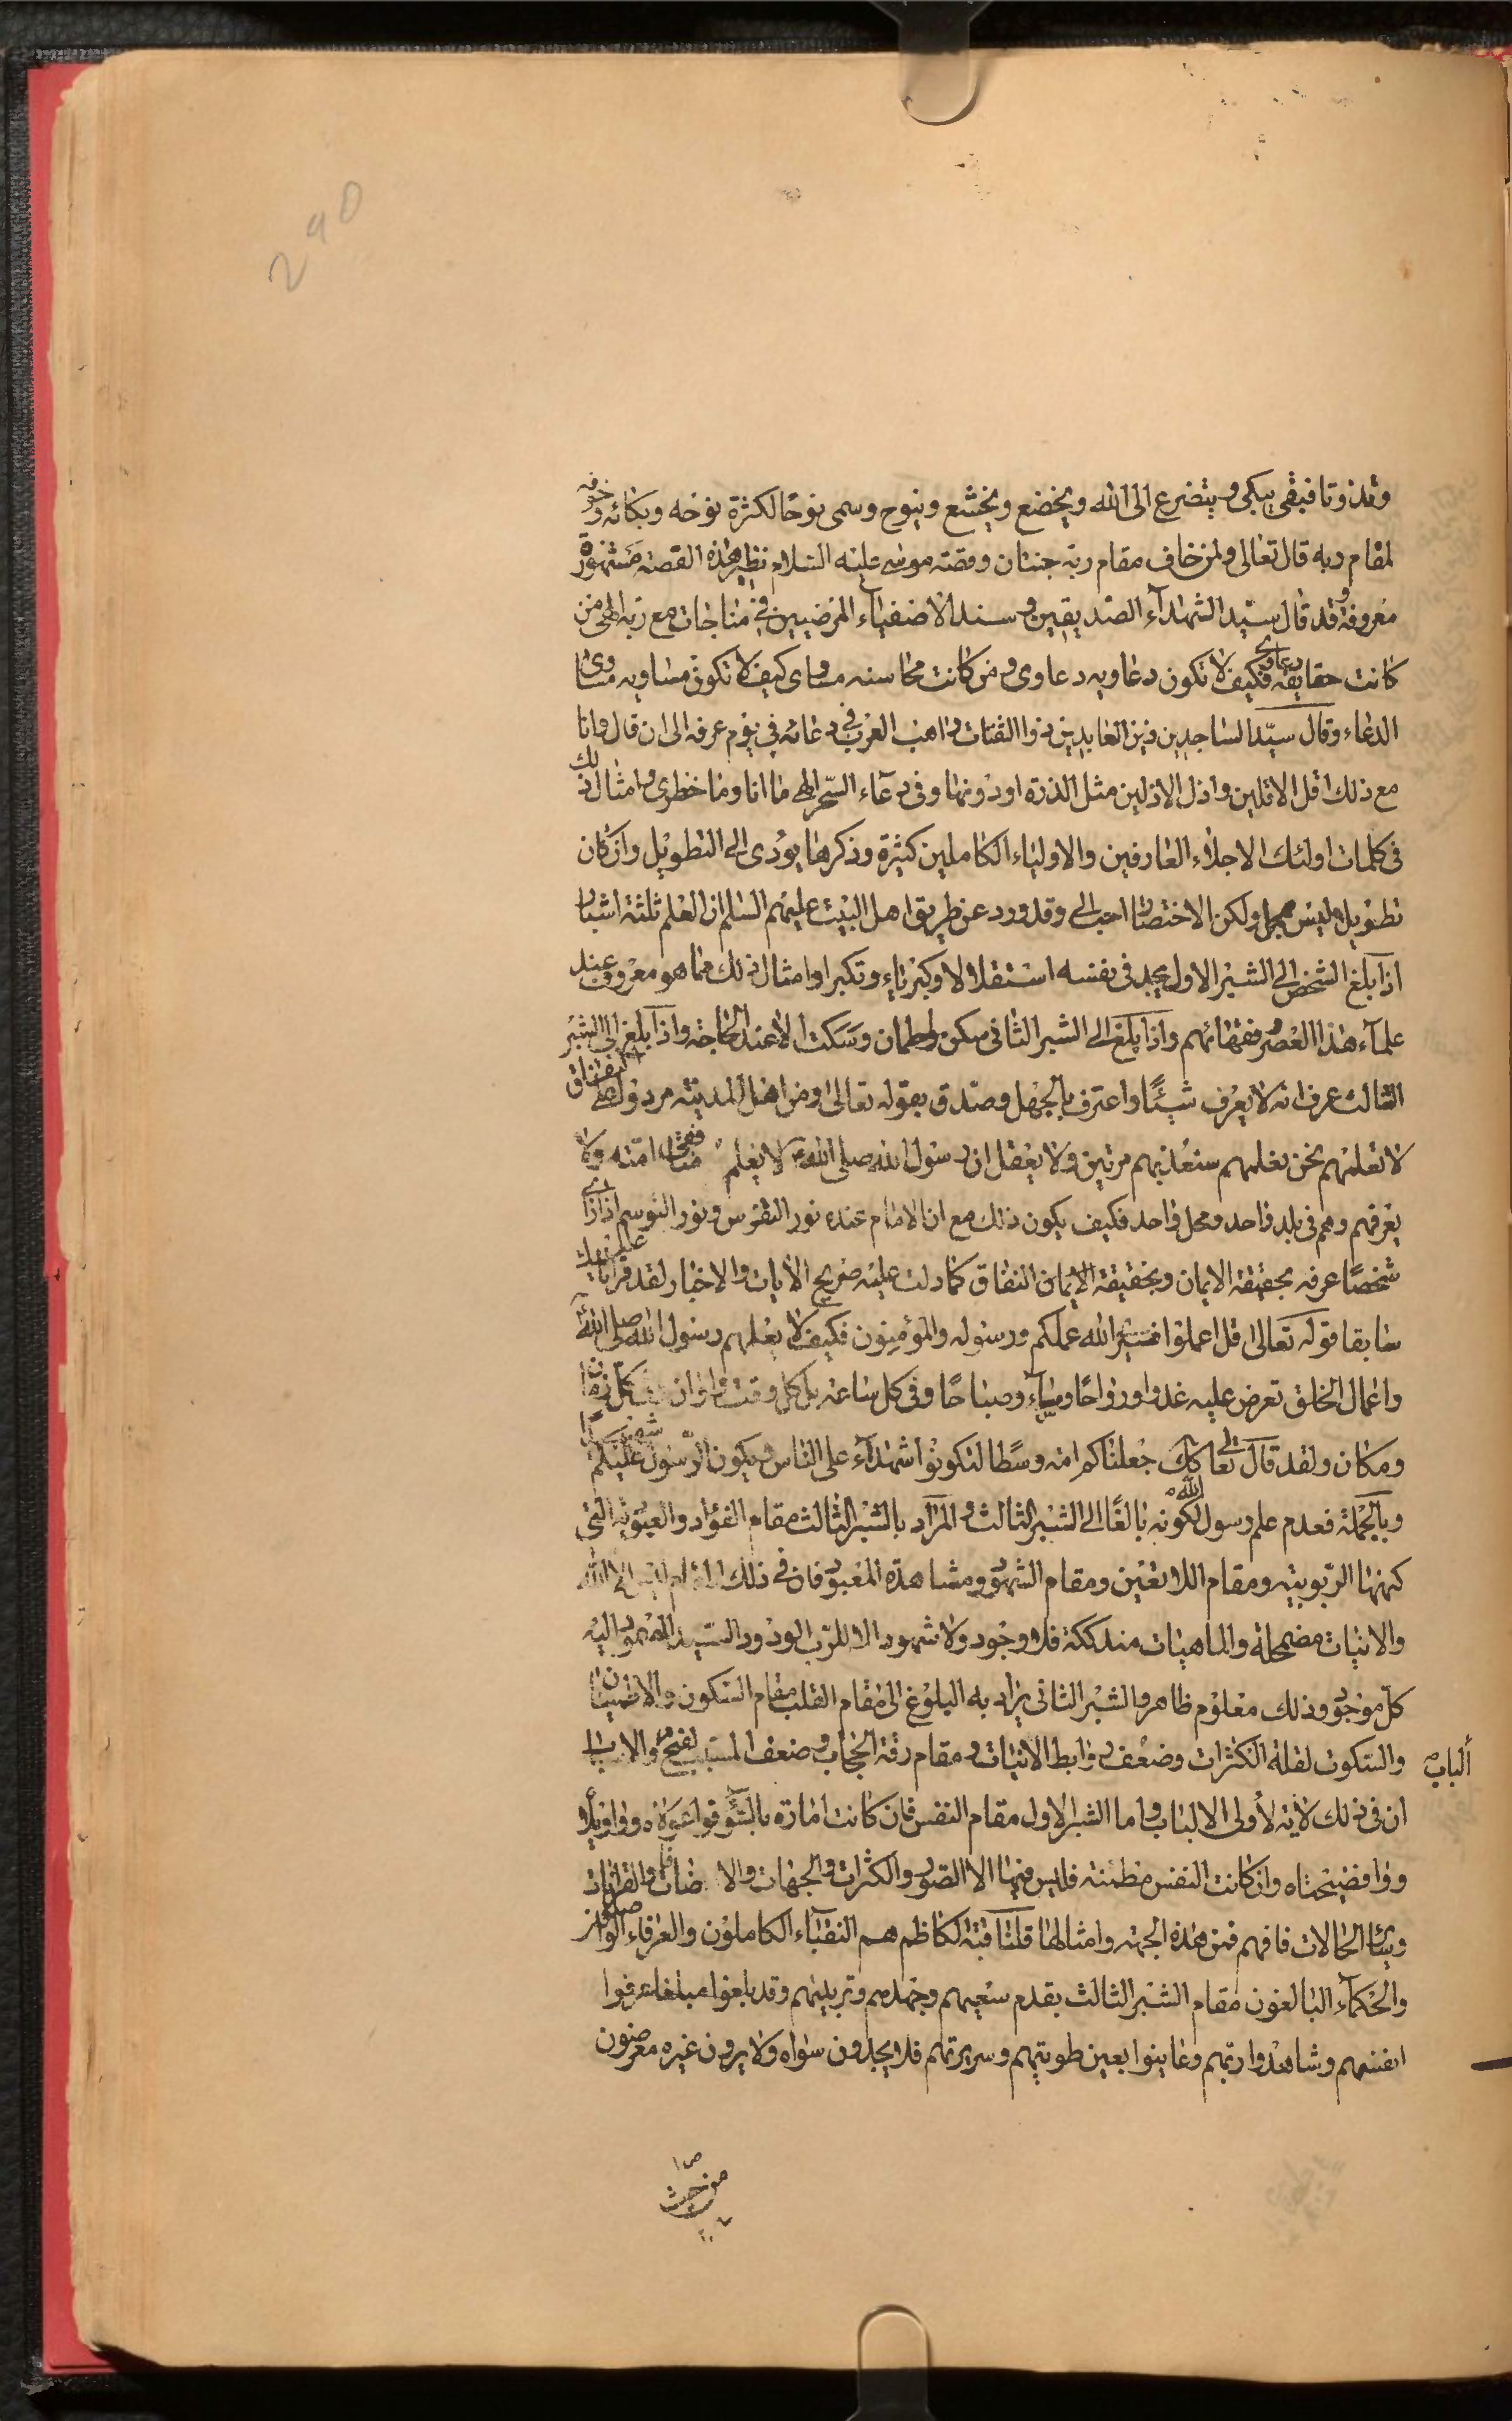 290
وقذوتا فبقى يبكى و يتضرع الى الله ويخضع ويخشع وينوح وسمى نوحًا لكثرة نوحه وبكائه وخوفه
لمقام ربه قال تعالى ولمن خاف مقام ربّه جنتان وقصّته موسى عليه السّلام نظير هذه القصة مشهورة
معروفة وقد قال سيّد الشهدآء الصّديقين و سند الاصفياء المرضيين في مناجات مع ربّه الهى من
كانت حقايقه دعاوى فكيف لا تكون دعاويه دعاوى و من كانت محاسنه مساوى كيف لا تكون مساويه مساوى
الدعاء وقال سيّد الساجدين زين العابدين ذوا الثفنات راهب العرب في دعائه في يوم عرفه الى ان قال وانا
مع ذلك اقل الاقلين واذل الاذلين مثل الذرة او دونها وفى دعآء السّحر الهى ما انا وما خطرى وامثال ذلك
فى كلمات اولئك الاجلاء العارفين والاولياء الكاملين كثيرة وذكرها يؤدى الى التطويل وان كان
تطويله ليس بمحل ولكن الاختصار احب الى وقد ورد عن طريق اهل البيت عليهم السّلم ان العلم ثلثة اشبار
اذا بلغ الشخص الى الشبر الاول يجد فى نفسه استقلالا وكبرياء وتكبرا وامثال ذلك مما هو معروف عند
علمآء هذا العصر وفقهائهم واذا بلغ الى الشبر الثانى سكن واطمان وسكت الا عند الحاجة واذا بلغ الى الشبر
الثالث عرف انه لا يعرف شيئًا واعترف بالجهل وصدق بقوله تعالى ومن اهل المدينة مردوا على النفاق
لا تعلمهم نحن نعلمهم سنعذبهم مرتين ولا يعقل ان رسول الله صلى الله لا يعلم منافقى امته ولا
يعرفهم وهم فى بلد واحد ومحل واحد فكيف يكون ذلك مع ان الامام عنده نور التفرس ونور التوسم اذا رأى
شخصًا عرفه بحقيقة الايمان وبحقيقة النفاق كما دلت عليه صريح الايات والاخبار ولقد قرأنا عليك
سابقا قوله تعالى قل اعملوا فسيرى الله عملكم ورسوله والمؤمنون فكيف لا يعلمهم رسول الله صلى الله
واعمال الخلق تعرض عليه غدوا ورواحًا ومساء وصباحًا وفى كل ساعة بل كل وقت واوان كل زمان
ومكان ولقد قال تعالى كك جعلناكم امة وسطًا لتكونوا شهدآء على الناس ويكون الرّسول عليكم شهيدًا
وبالجملة فعدم علم رسول الله لكونه بالغًا الى الشبر الثالث و المراد بالشبر الثالث مقام الفؤاد والعبوديّة التى
كنهها الرّبوبيّة ومقام اللا تعين ومقام الشهود ومشاهدة المعبود فان في ذلك المقام ليس الا الله
والانيات مضمحلة والماهيات مندككة فلا وجود ولا شهود الا للرّب الودود والسّيد المصمود اليه
كل موجود وذلك معلوم ظاهر والشبر الثانى يراد به البلوغ الى مقام القلب مقام السّكون والاطمينان
والسّكوت لقلة الكثرات وضعف روابط الانيات ومقام رقة الحجاب وضعف المسبب لفتح الباب
ان فى ذلك لاية لأولى الالباب واما الشبر الاول مقام النفس فان كانت امارة بالسّوء فواغوثاه وواويلا
ووا فضيحتاه وان كانت النفس مطمئنه فليس فيها الا الصّور والكثرات والجهات والاضافات والقرانات
وسائر الحالات فافهم فمن هذه الجهة وامثالها قلنا قبة الكاظم هم النقبآء الكاملون والعرفاء الواصلون
والحكمآء البالغون مقام الشبر الثالث بقدم سعيهم وجهدهم وتربيتهم وقد بلغوا مبلغا عرفوا
انفسهم وشاهدوا ربّهم وعاينوا بعين طويتهم وسريرتهم فلا يجدون سواه ولا يرون غيره معرضون